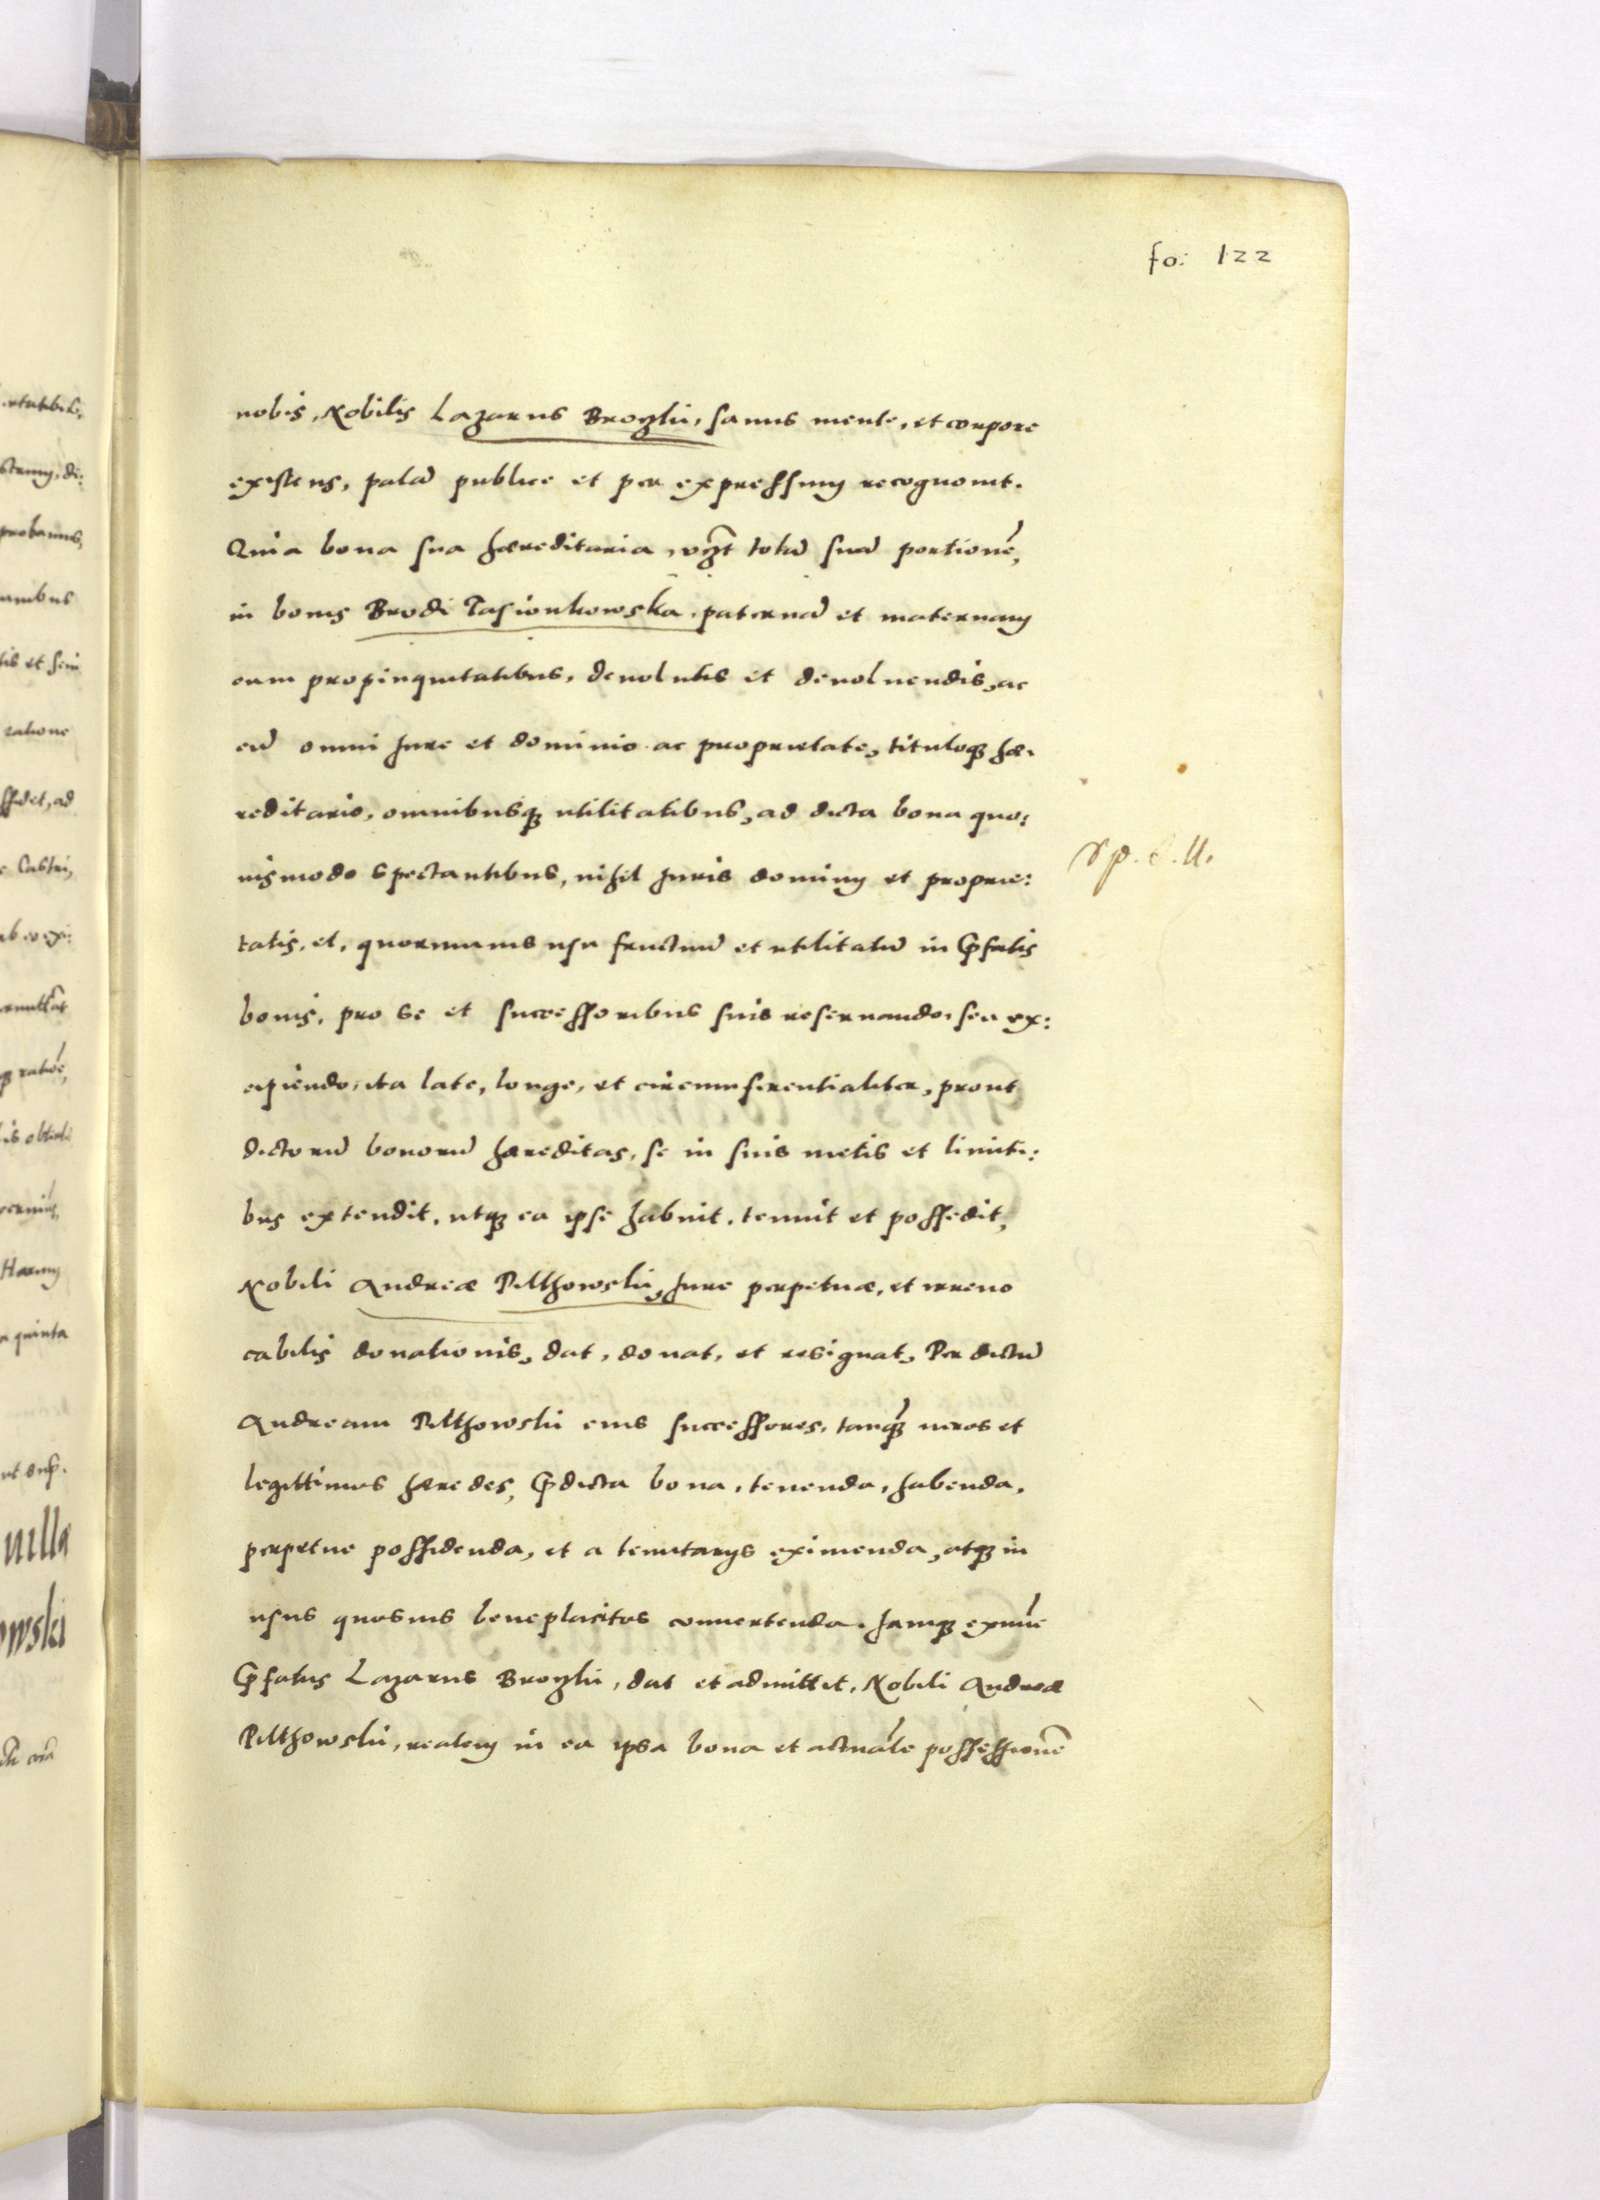 fo: 122
nobis, Nobilis Lazarus Brozki, sanus mente, et corpore
existens, palã publice et per expressum recognouit.
Quia bona sua hæreditaria, vzt totã suã portionẽ,
in bonis Brodi Tasionkowska, paternã et maternam
cum propinquitatibus, deuolutis et deuoluendis, ac
cũ omni Jure et dominio ac proprietate, tituloqȝ hæ:
reditario, omnibusqȝ utilitatibus, ad dicta bona quo:
uismodo spectantibus, nihil Juris dominij et proprie:
tatis, et, quorumuis usu fructuũ et utilitatũ in Pfatis
bonis, pro se et successoribus suis reseruando, seu ex:
cipiendo, ita late, longe, et circumferentialiter, prout
dictorũ bonorũ hæreditas, se in suis metis et limiti:
bus extendit, utqȝ ea ipse habuit, tenuit et possedit,
Nobili Andreæ Pilchowski, Jure perpetuæ, et irreuo
cabilis donationis, dat, donat, et resignat, Per dictũ
Andream Pilchowski eius successores, tanqȝ ueros et
legittimos hæredes, Pdicta bona, tenenda, habenda,
perpetue possidenda, et a tenutarijs eximenda, atqȝ in
usus quosuis beneplacitos conuertenda. Jamqȝ
Pfatus Lazarus Brozki, dat et admittit, Nobili Andreæ
Pilchowski, realem in ea ipsa bona et actualẽ possessionẽ